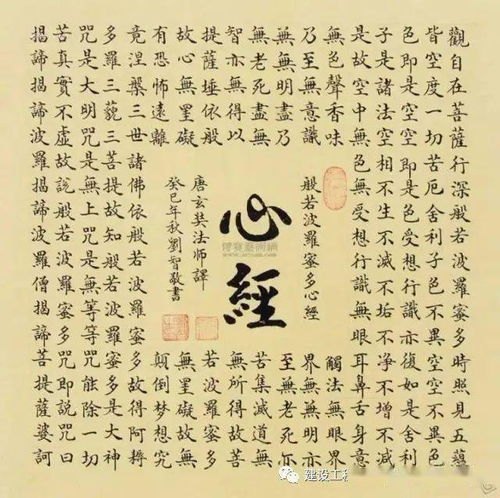 觀自在菩薩行深般若波羅蜜多時照見五蘊
皆空度一切苦厄舍利子色不異空空不異色
色即是空空即是色受想行識亦復如是舍利
子是諸法空相不生不滅不垢不淨不增不減
是故空中無色無受想行識無眼耳鼻舌身意
無色聲香味
觸法無眼界
乃至無意識
界無無明亦
無無明盡乃
至無老死亦
無老死盡無
苦集滅道無
智亦無得以
無所得故菩
提薩埵依般
若波羅蜜多
故心無罣礙
無罣礙故無
有恐怖遠離
顛倒梦想究
竟涅槃三世諸佛依般若波羅蜜多故得阿耨
多羅三藐三菩提故知般若波羅蜜多是大神
咒是大明咒是無上咒是無等等咒能除一切
苦真實不虛故說般若波羅蜜多咒即說咒曰
揭諦揭諦波羅揭諦波羅僧揭諦菩提薩婆訶
般若波羅蜜多心經
心經
唐玄奘法師譯
癸巳年秋劉智敬書
建设工